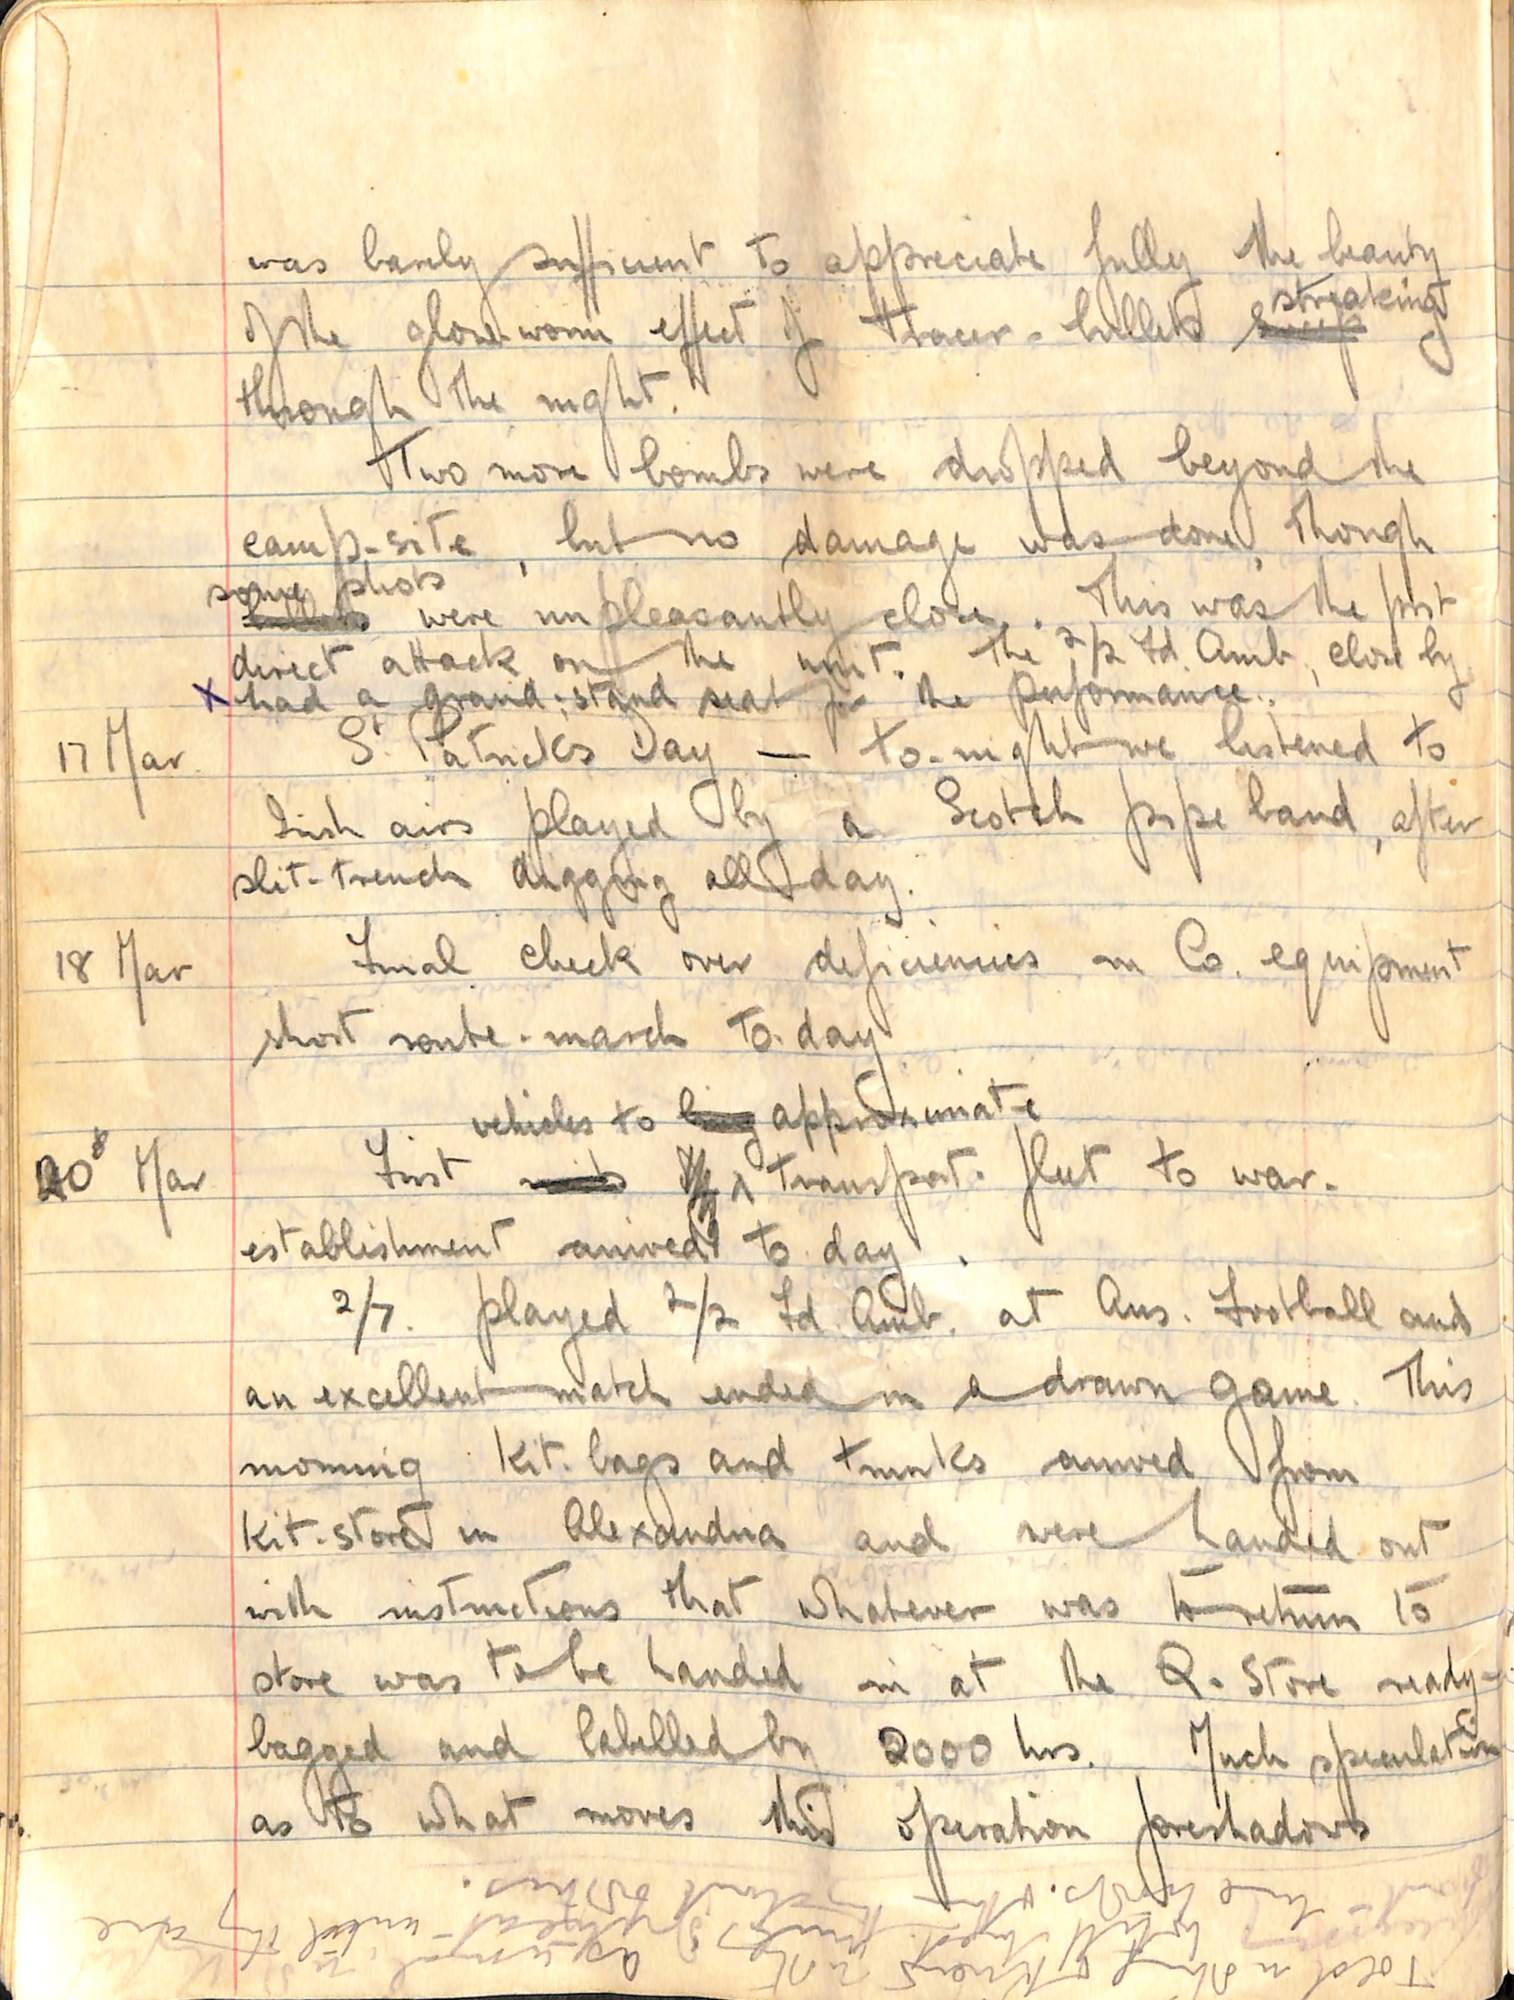 was barely sufficient to appreciate fully the beauty
of the glow-worm effect of tracer-bullets streaking
through the night.
Two more bombs were dropped beyond the
camp-site, but no damage was done, though
some shots
were unpleasantly close. This was the first
direct attack on the unit. The 2/2 Fd. Amb., close by
x had a grand-stand seat for the performance.
17 Mar St. Patrick's Day — to-night we listened to
Irish airs played by a Scotch pipe band, after
slit-trench digging all day.
18 Mar Final check over deficiencies in Co. equipment
short route-march to-day
vehicles to approximate
20 Mar First transport-fleet to war-
establishment arrived to day.
2/7. played 2/2 Fd. Amb. at Aus. Football and
an excellent match ended in a drawn game. This
morning kit-bags and trunks arrived from
kit-store in Alexandria and were handed out
with instructions that whatever was to return to
store was to be handed in at the Q-Store ready-
bagged and labelled by 2000 hrs. Much speculation
as to what moves this operation foreshadows
Told nothing
as usual until they are